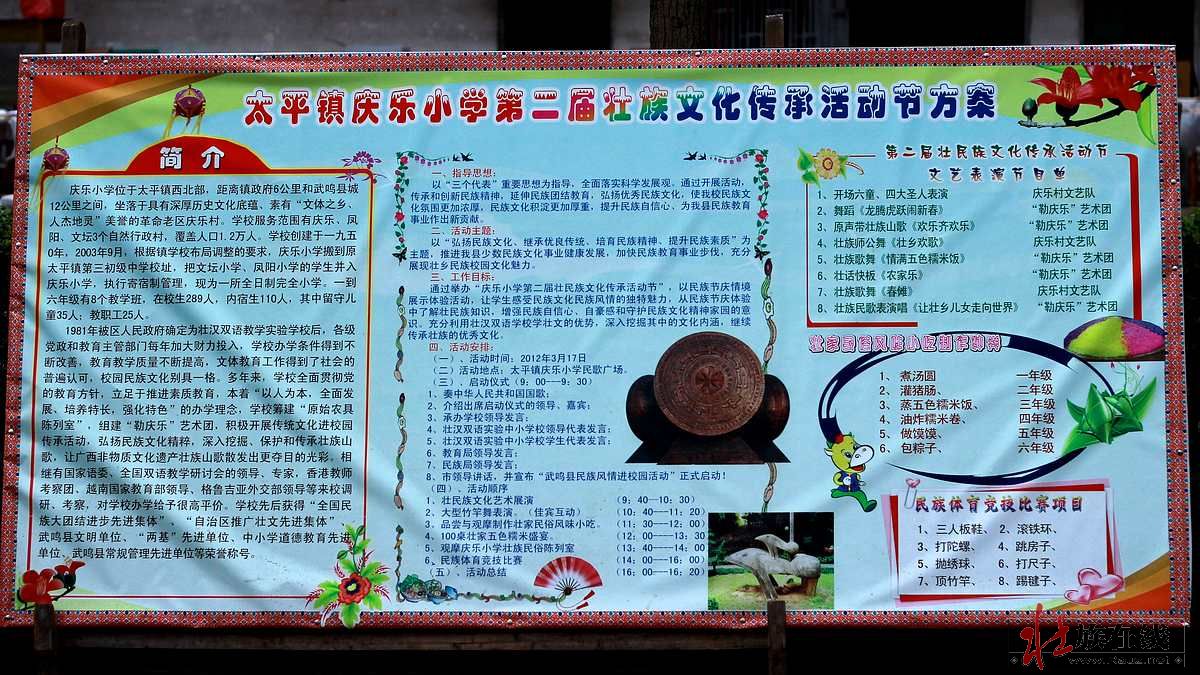 太平镇庆乐小学第二届壮族文化传承活动节方案
简介
庆乐小学位于太平镇西北部，距离镇政府6公里和武鸣县城
12公里之间，坐落于具有深厚历史文化底蕴、素有“文体之乡、
人杰地灵”美誉的革命老区庆乐村。学校服务范围有庆乐、凤
阳、文坛3个自然行政村，覆盖人口1.2万人。学校创建于一九五
0年，2003年9月，根据镇学校布局调整的要求，庆乐小学搬到原
太平镇第三初级中学校址，把文坛小学、凤阳小学的学生并入
庆乐小学，执行寄宿制管理，现为一所全日制完全小学。一到
六年级有8个教学班，在校生289人，内宿生110人，其中留守儿
童35人；教职工25人。
1981年被区人民政府确定为壮汉双语教学实验学校后，各级
党政和教育主管部门每年加大财力投入，学校办学条件得到不
断改善，教育教学质量不断提高，文体教育工作得到了社会的
普遍认可，校园民族文化别具一格。多年来，学校全面贯彻党
的教育方针，立足于推进素质教育，本着“以人为本，全面发
展、培养特长，强化特色”的办学理念，学校筹建“原始农具
陈列室”，组建“勒庆乐”艺术团，积极开展传统文化进校园
传承活动，弘扬民族文化精粹，深入挖掘、保护和传承壮族山
歌，让广西非物质文化遗产壮族山歌散发出更夺目的光彩。相
继有国家语委、全国双语教学研讨会的领导、专家，香港教师
考察团、越南国家教育部领导、格鲁吉亚外交部领导等来校调
研、考察，对学校办学给予很高平价。学校先后获得“全国民
族大团结进步先进集体”、“自治区推广壮文先进集体”、
武鸣县文明单位、“两基”先进单位、中小学道德教育先进
单位、武鸣县常规管理先进单位等荣誉称号。
一、指导思想：
以“三个代表”重要思想为指导，全面落实科学发展观，通过开展活动，
传承和创新民族精神，延伸民族团结教育，弘扬优秀民族文化，使我校民族文
化氛围更加浓厚，民族文化积淀更加厚重，提升民族自信心，为我县民族教育
事业作出新贡献。
二、活动主题：
以“弘扬民族文化、继承优良传统、培育民族精神、提升民族素质”为
主题，推进我县少数民族文化事业健康发展，加快民族教育事业步伐，充分
展现壮乡民族校园文化魅力。
三、工作目标：
通过举办“庆乐小学第二届壮民族文化传承活动节”，以民族节庆情境
展示体验活动，让学生感受民族文化民族风情的独特魅力，从民族节庆体验
中了解壮民族知识，增强民族自信心、自豪感和守护民族文化精神家园的意
识。充分利用壮汉双语学校学壮文的优势，深入挖掘其中的文化内涵，继续
传承壮族的优秀文化。
四、活动安排：
（一）、活动时间：2012年3月17日
（二）活动地点：太平镇庆乐小学民歌广场。
（三）、启动仪式（9：00--9：30）
1、奏中华人民共和国国歌；
2、介绍出席启动仪式的领导、嘉宾；
3、承办学校领导发言；
4、壮汉双语实验中小学校领导代表发言；
5、壮汉双语实验中小学校学生代表发言；
6、教育局领导发言；
7、民族局领导发言；
8、市领导讲话，并宣布“武鸣县民族风情进校园活动”正式启动！
（四）、活动顺序
1、壮民族文化艺术展演 （9：40--10：30）
2、大型竹竿舞表演、（佳宾互动） （10：40---11：20）
3、品尝与观摩制作壮家民俗风味小吃。 （11：30---12：00）
4、100桌壮家五色糯米盛宴。 （12：00----13：30
5、观摩庆乐小学壮族民俗陈列室 （13：40---14：00
6、民族体育竞技比赛 （14：00---16：00）
（五）、活动总结 （16：00---16：20）
第二届壮民族文化传承活动节
文艺表演节目单
1、开场六童、四大圣人表演 庆乐村文艺队
2、舞蹈《龙腾虎跃闹新春》 “勒庆乐”艺术团
3、原声带壮族山歌《欢乐齐欢乐》 “勒庆乐”艺术团
4、壮族师公舞《壮乡欢歌》 庆乐村文艺队
5、壮族歌舞《情满五色糯米饭》 “勒庆乐”艺术团
6、壮话快板《农家乐》 “勒庆乐”艺术团
7、壮族歌舞《春傩》 庆乐村文艺队
8、壮族民歌表演唱《让壮乡儿女走向世界》 “勒庆乐”艺术团
1、煮汤圆 一年级
2、灌猪肠、 二年级
3、蒸五色糯米饭、 三年级
4、油炸糯米卷、 四年级
5、做馍馍、 五年级
6、包粽子、 六年级
民族体育竞技比赛项目
1、三人板鞋、 2、滚铁环、
3、打陀螺、 4、跳房子、
5、抛绣球、 6、打尺子、
7、顶竹竿、 8、踢毽子、
壮族在线